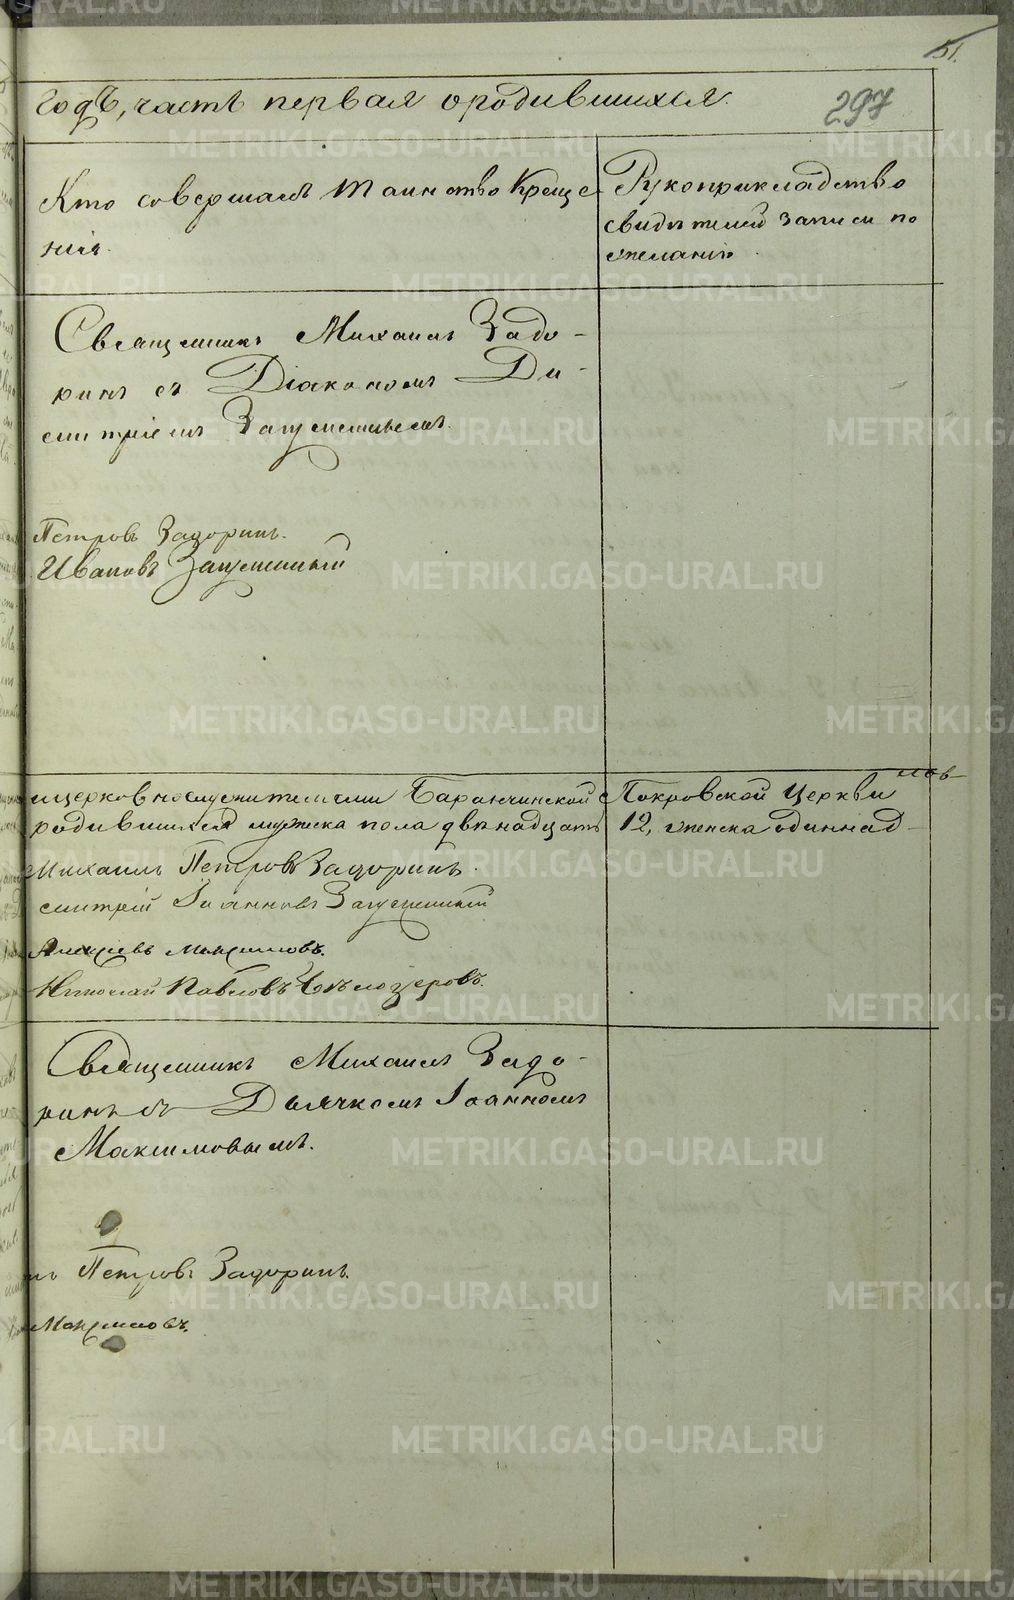 51.
годъ, часть первая о родившихся.
297
Кто совершалъ таинство Креще-
нія.
Рукоприкладство
свидѣтелей записи по
желанію.
Священникъ Михаилъ Задо-
ринъ съ Діакономъ Ди-
митріемъ
Петровъ Задоринъ.
Ивановъ
ицерковнослужителями Баранчинской
Покровской Церкви
родившихся мужеска пола двѣнадцать
12, женска одиннад-
Михаилъ Петровъ Задоринъ.
митрій Іоанновъ
Максимовъ.
Николай Павловъ Бѣлозеровъ.
Священникъ Михаилъ Задо-
ринъ съ Дьячкомъ Іоанномъ
Максимовымъ.
ъ Петровъ Задоринъ.
Максимовъ.
METRIKI.GASO-URAL.RU